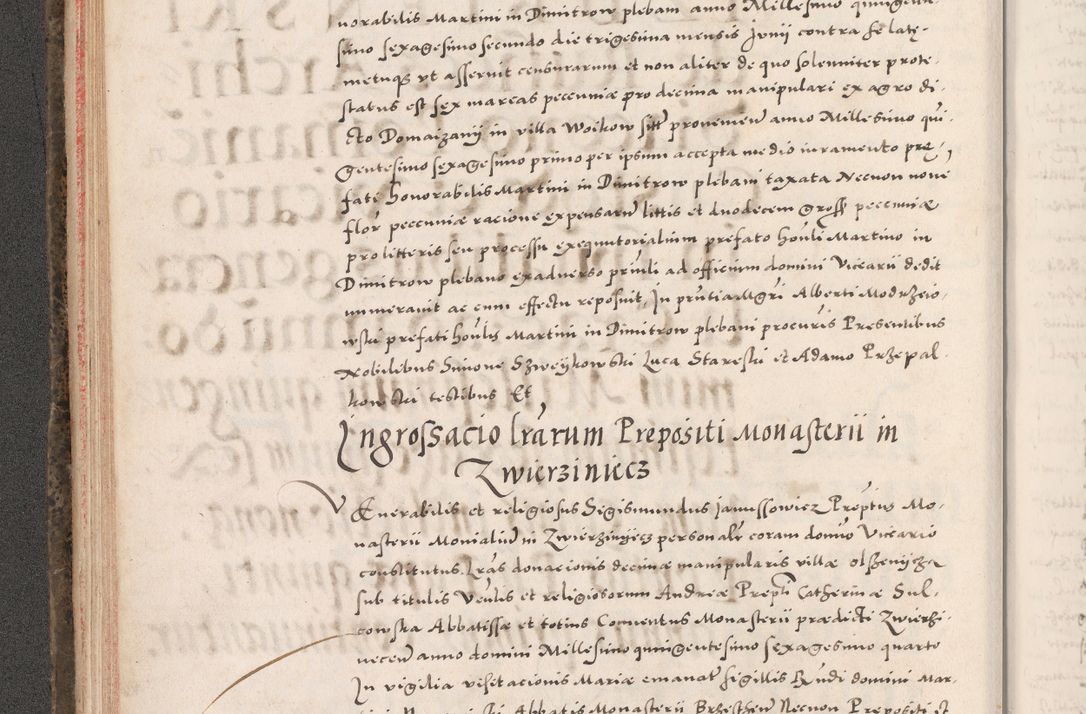 norabilis Martini in Dimitrow plebani anno Millesimo quingente-
simo sexagesimo secundo die trigesima mensis Junij contra se late-
metusque vt asseruit censurarum et non aliter de quo solenniter prote-
status est sex marcas pecuniæ pro decima manipulari ex agro di-
cto Domaizanij in villa Woikow sitt provenien anno Millesimo qui-
gentesimo sexagesimo primo per ipsum accepta medio iuramento pre-
fate honorabilis Martini in Dimitrow plebani taxata Necnon nove
flor pecuniæ racione expensarum littis et duodecem gross pecuniæ
pro litteris seu processu exequutorialium prefato honli Martino in
Dimitrow plebano exadverso priuli ad officium domini Vicarii dedit
numeravit ac cum effectu reposuit, In prntia Mgri Alberti Modrzeio-
wski prefati honlis Martini in Dimitrow plebani procuris Presentibus
Nobilibus Simone Szweykowski Luca Stareski et Adamo Przepal-
kowski testibus Et
Ingrossacio lrarum Prepositi Monasterii in
Zwierziniecz
VEnerabilis et religiosus Sigismundus Janussowicz Preptus Mo-
nasterii Monialium in Zwierzinyecz personalr coram domno Vicario
constitutus. Lras donacionis decimæ manipularis villæ Olszenicza
sub titulis Venlis et religiosorum Andreæ Prepti Catherinæ Sul-
cowska Abbatissæ et totius Conventus Monasterii prædicti Zwierzi-
necen anno domini Millesimo quingentesimo sexagesimo quarto
In vigilia visitacionis Mariæ emanat sigillis Rndi domini Mar-
Abbatis Monasterii Brzesthen Necnon Prepositi et